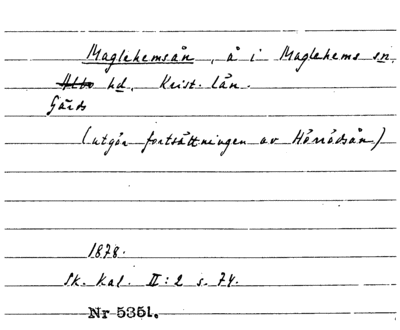 Maglehemsån, å i Maglehems sn,
Albo hd, Krist. län.
Gärds
(utgör fortsättningen av Hörrödsån.)
1878.
Sk. Kal. II:2 s. 74.
Nr 5351.